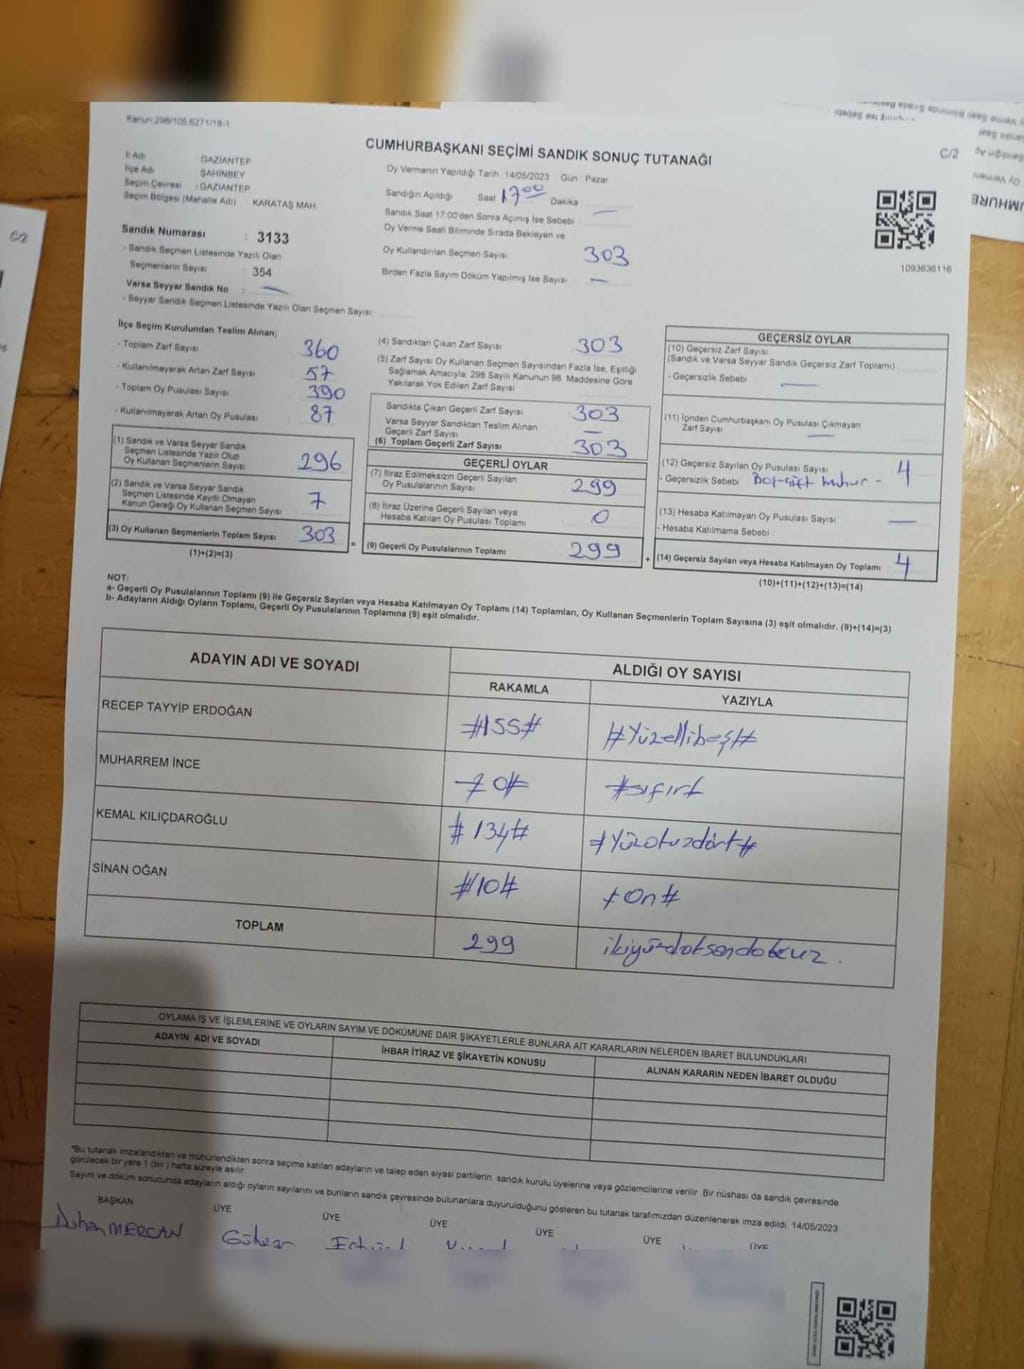 Kanun 298/105,6271/18-1
CUMHURBAŞKANI SEÇİMİ SANDIK SONUÇ TUTANAĞI
C/2
İl Adı GAZİANTEP
İlçe Adı ŞAHİNBEY
Seçim Çevresi : GAZİANTEP
Seçim Bölgesi (Mahalle Adı) KARATAŞ MAH.
Sandık Numarası : 3133
- Sandık Seçmen Listesinde Yazılı Olan
Seçmenlerin Sayısı : 354
Varsa Seyyar Sandık No : —
- Seyyar Sandık Seçmen Listesinde Yazılı Olan Seçmen Sayısı :
Oy Vermenin Yapıldığı Tarih :14/05/2023 Gün : Pazar
Sandığın Açıldığı Saat 17:00 Dakika
Sandık Saat 17:00'den Sonra Açımış İse Sebebi : —
Oy Verme Saati Bitiminde Sırada Bekleyen ve
Oy Kullandırılan Seçmen Sayısı 303
Birden Fazla Sayım Döküm Yapılmış İse Sayısı : —
1093636116
İlçe Seçim Kurulundan Teslim Alınan;
- Toplam Zarf Sayısı 360
- Kullanılmayarak Artan Zarf Sayısı : 57
- Toplam Oy Pusulası Sayısı : 390
- Kullanılmayarak Artan Oy Pusulası : 87
(1) Sandık ve Varsa Seyyar Sandık
Seçmen Listesinde Yazılı Olup
Oy Kullanan Seçmenlerin Sayısı 296
(2) Sandık ve Varsa Seyyar Sandık
Seçmen Listesinde Kayıtlı Olmayan
Kanun Gereği Oy Kullanan Seçmen Sayısı 7
(3) Oy Kullanan Seçmenlerin Toplam Sayısı 303
(1)+(2)=(3)
(4) Sandıktan Çıkan Zarf Sayısı 303
(5) Zarf Sayısı Oy Kullanan Seçmen Sayısından Fazla İse, Eşitliği
Sağlamak Amacıyla; 298 Sayılı Kanunun 98. Maddesine Göre
Yakılarak Yok Edilen Zarf Sayısı
Sandıkta Çıkan Geçerli Zarf Sayısı 303
Varsa Seyyar Sandıktan Teslim Alınan
Geçerli Zarf Sayısı —
(6) Toplam Geçerli Zarf Sayısı 303
GEÇERLİ OYLAR
(7) İtiraz Edilmeksizin Geçerli Sayılan
Oy Pusulalarının Sayısı 299
(8) İtiraz Üzerine Geçerli Sayılan veya
Hesaba Katılan Oy Pusulası Toplamı 0
(9) Geçerli Oy Pusulalarının Toplamı 299
GEÇERSİZ OYLAR
(10) Geçersiz Zarf Sayısı
(Sandık ve Varsa Seyyar Sandık Geçersiz Zarf Toplamı)
- Geçersizlik Sebebi —
(11) İçinden Cumhurbaşkanı Oy Pusulası Çıkmayan
Zarf Sayısı —
(12) Geçersiz Sayılan Oy Pusulası Sayısı 4
- Geçersizlik Sebebi Boş-çift mühür -
(13) Hesaba Katılmayan Oy Pusulası Sayısı —
- Hesaba Katılmama Sebebi :
(14) Geçersiz Sayılan veya Hesaba Katılmayan Oy Toplamı 4
(10)+(11)+(12)+(13)=(14)
NOT:
a- Geçerli Oy Pusulalarının Toplamı (9) ile Geçersiz Sayılan veya Hesaba Katılmayan Oy Toplamı (14) Toplamları, Oy Kullanan Seçmenlerin Toplam Sayısına (3) eşit olmalıdır. (9)+(14)=(3)
b- Adayların Aldığı Oyların Toplamı, Geçerli Oy Pusulalarının Toplamına (9) eşit olmalıdır.
ADAYIN ADI VE SOYADI
ALDIĞI OY SAYISI
RAKAMLA YAZIYLA
RECEP TAYYİP ERDOĞAN #155# #Yüzellibeş#
MUHARREM İNCE #0# #sıfır#
KEMAL KILIÇDAROĞLU #134# #Yüzotuzdört#
SİNAN OĞAN #10# #On#
TOPLAM 299 ikiyüzdoksandokuz.
OYLAMA İŞ VE İŞLEMLERİNE VE OYLARIN SAYIM VE DÖKÜMÜNE DAİR ŞİKAYETLERLE BUNLARA AİT KARARLARIN NELERDEN İBARET BULUNDUKLARI
ADAYIN ADI VE SOYADI İHBAR İTİRAZ VE ŞİKAYETİN KONUSU ALINAN KARARIN NEDEN İBARET OLDUĞU
"Bu tutanak imzalandıktan ve mühürlendikten sonra seçime katılan adayların ve talep eden siyasi partilerin sandık kurulu üyelerine veya gözlemcilerine verilir. Bir nüshası da sandık çevresinde
görülecek bir yere 1 (bir) hafta süreyle asılır.
Sayım ve döküm sonucunda adayların aldığı oyların sayılarını ve bunların sandık çevresinde bulunanlara duyurulduğunu gösteren bu tutanak tarafımızdan düzenlenerek imza edildi. 14/05/2023
BAŞKAN ÜYE ÜYE ÜYE ÜYE ÜYE ÜYE
MERCAN Gökhan